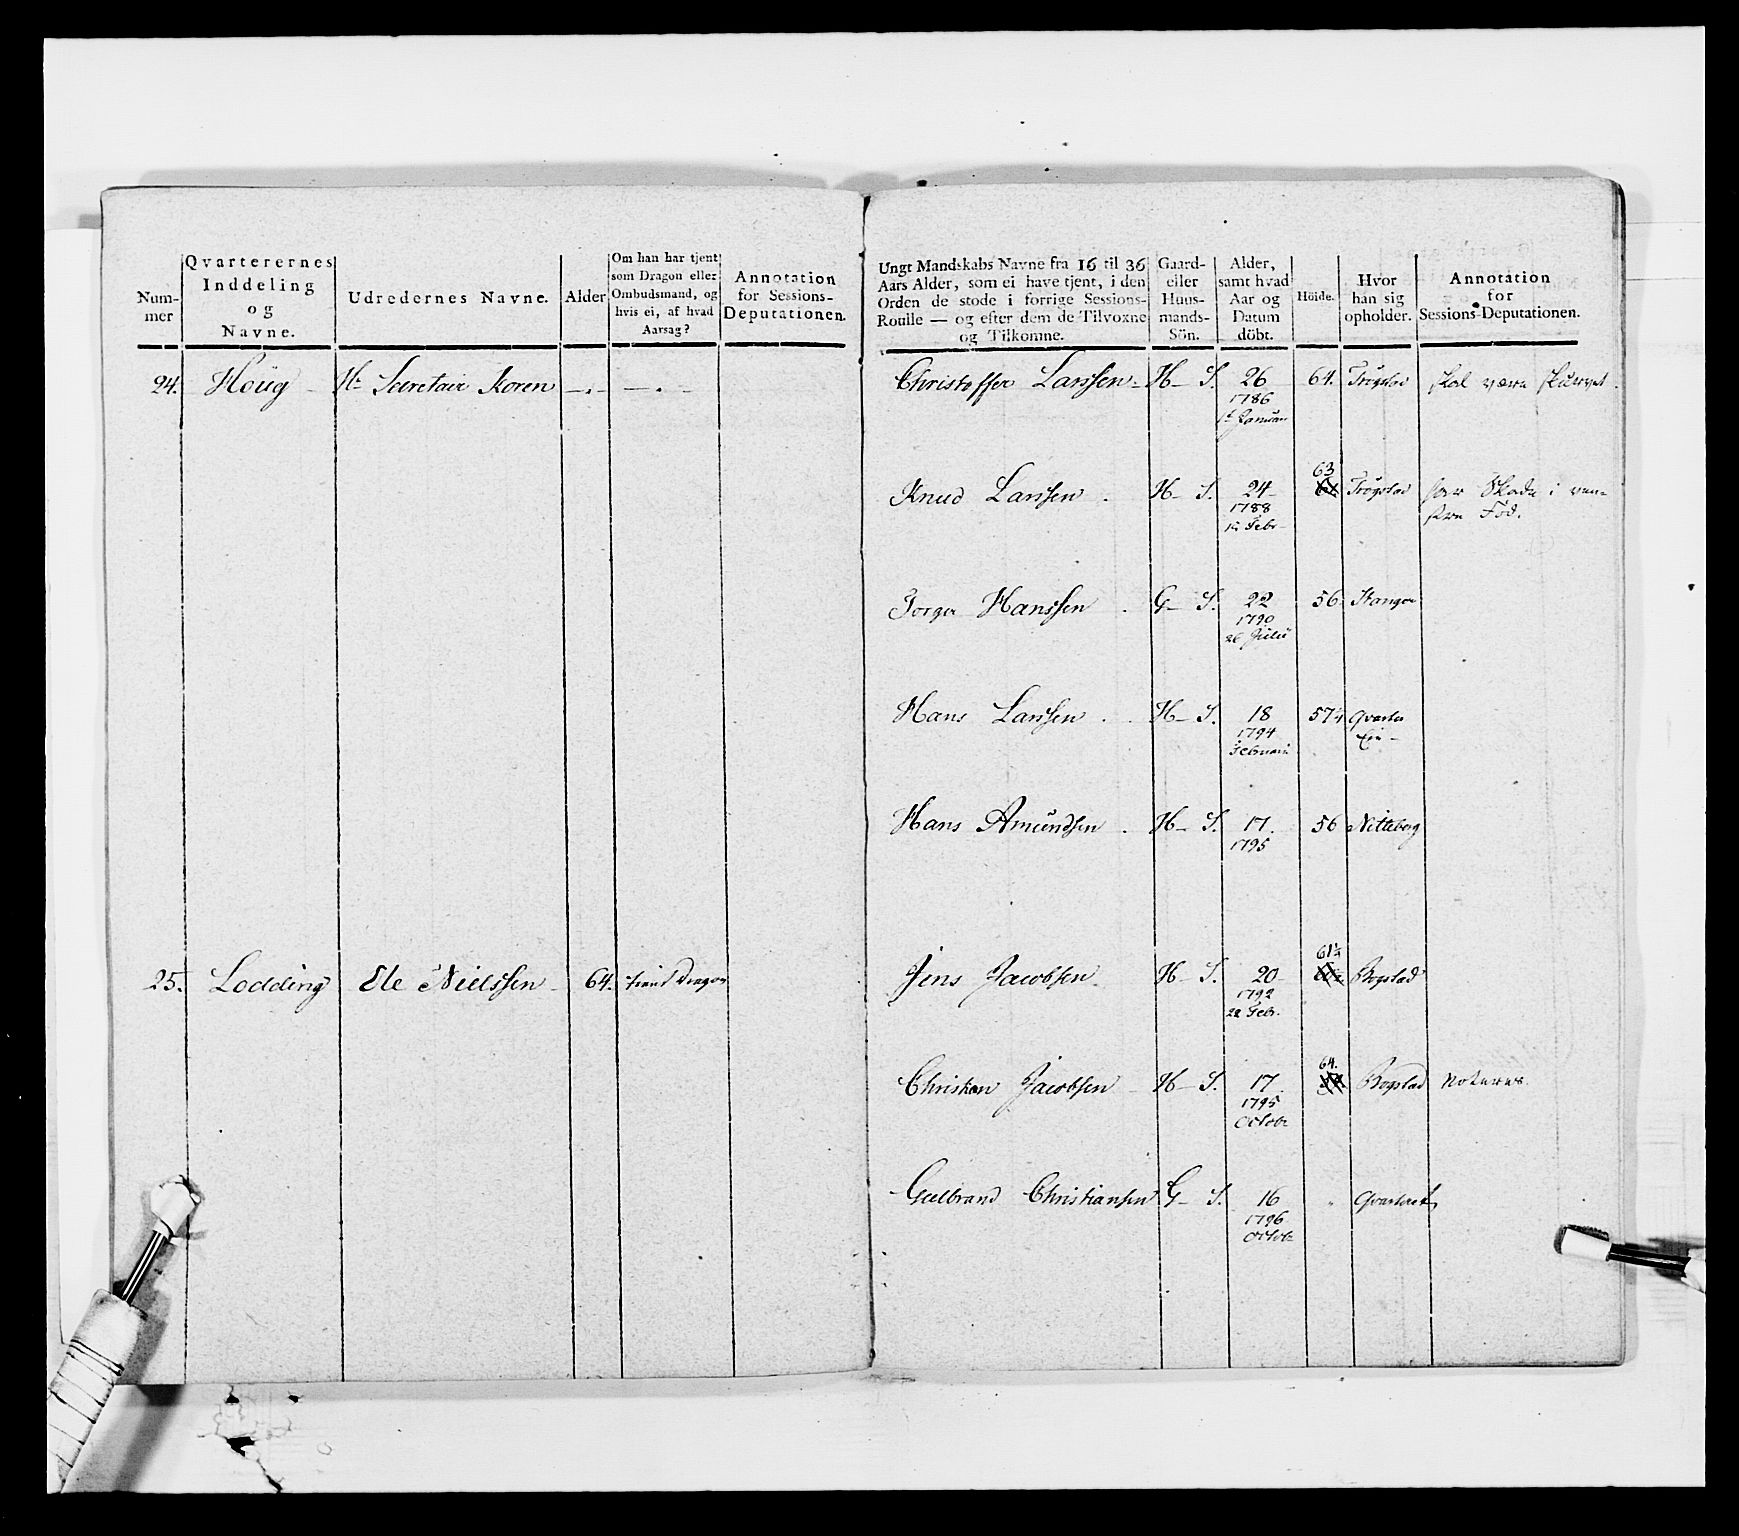 Num-
mer
Qvarterernes
Inddeling
og
Navne.
Udredernes Navne.
Alder
Om han har tjent
som Dragon eller
Ombudsmand, og
hvis ei, af hvad
Aarsag?
Annotation
for Sessions-
Deputationen.
24. Höüg - Hr Secretair Koren -.- -.-
25. Lodding Ole Nielssen - 64. tient Dragon
Ungt Mandskabs Navne fra 16 til 36
Aars Alder, som ei have tjent, i den
Orden de stode i forrige Sessions-
Roulle — og efter dem de Tilvoxne
og Tilkomne.
Gaard-
eller
Huus-
mands-
Sön.
Alder,
samt hvad
Aar og
Datum
döbt.
Höide.
Hvor
han sig
opholder.
Annotation
for
Sessions-Deputationen.
Christoffer Larssen - H - S. 26 64. Trögstad skal være skurvet.
1786
1t Januar
63
Knud Larssen . H - S. 24 Trögstad har Skade i ven-
1788 stre Fod.
Febr
Torger Hanssen . G - S. 22 56 Stange
1790
26 Julü
Hans Larssen . H - S. 18 57 Qvarter
1794
Februarü
Hans Amundsen . H - S. 17. 56 Nitteberg
1795
61½
Jens Jacobsen. H - S. 20 Bogstad
1792
22 Febr.
64.
Christian Jacobsen - H - S. 17 Bogstad Noteres.
1795
Octobr
Gulbrand Christiansen G - S. 16 " Qvarteret
1796
Octobr